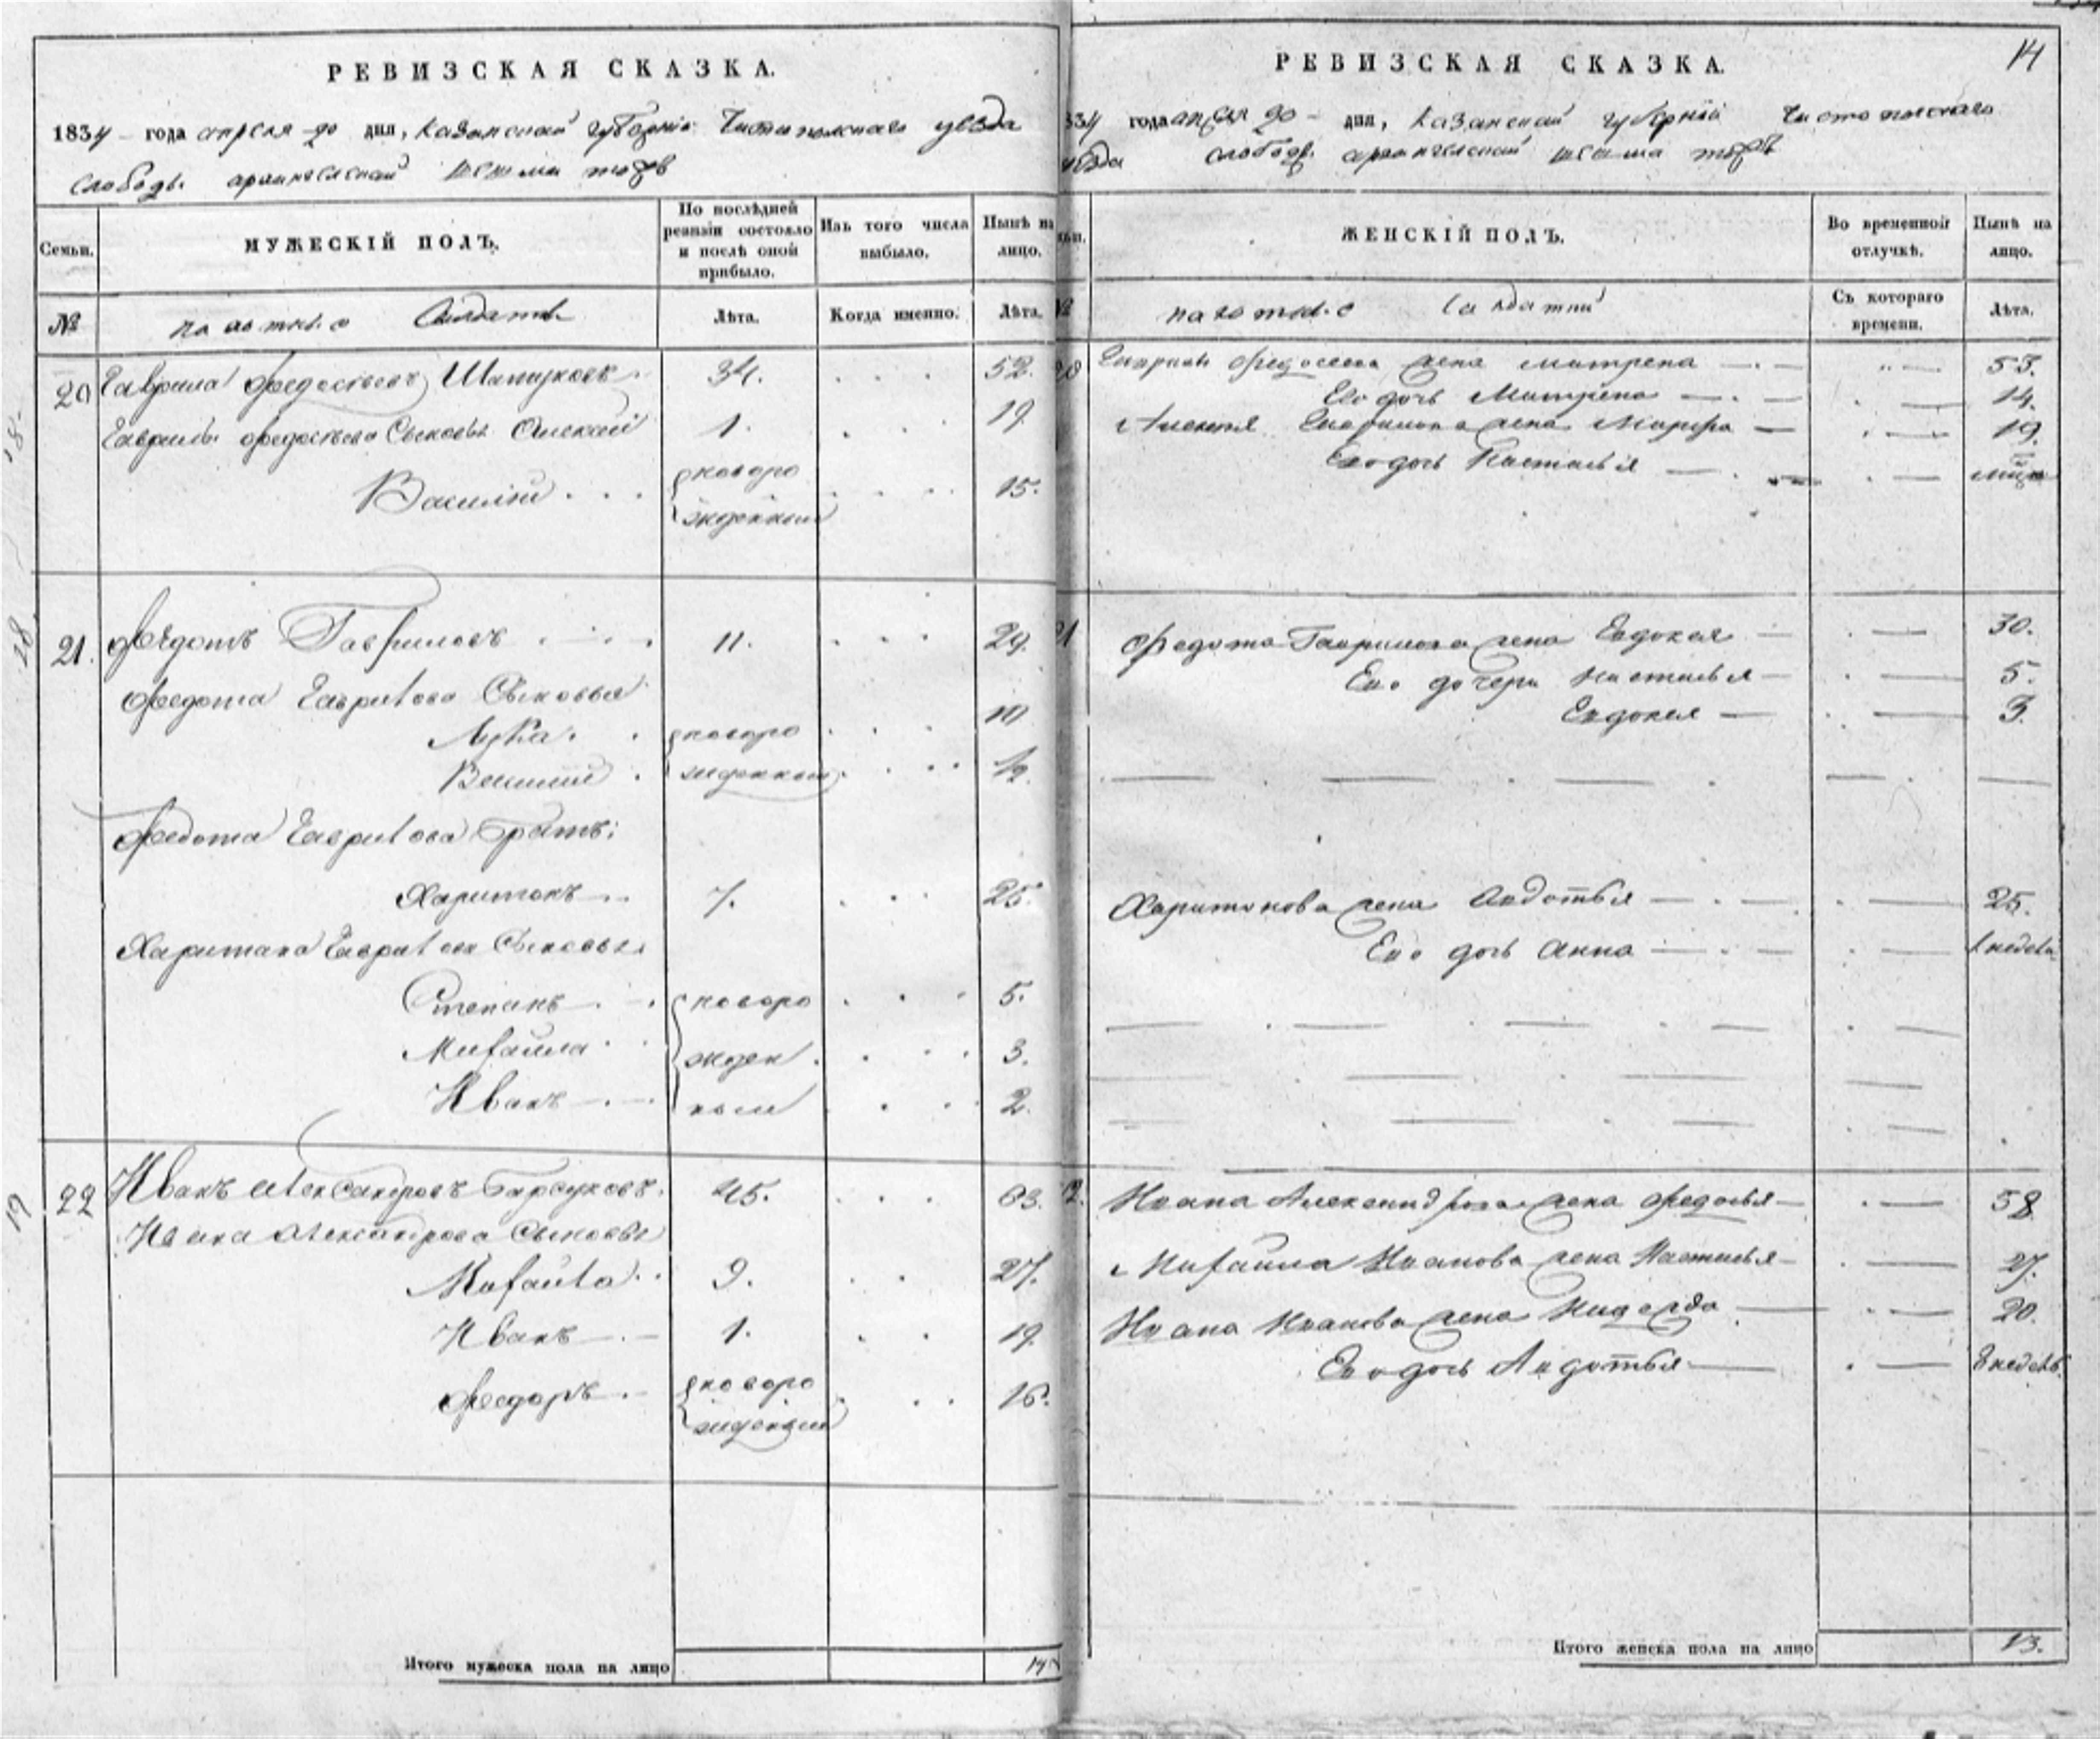 РЕВИЗСКАЯ СКАЗКА.
1834 года апреля 20 дня, Казанской губернии Чистопольскаго уезда
слободы архангельской
Семьи. МУЖЕСКІЙ ПОЛЪ. По послѣдней ревизіи состояло и послѣ оной прибыло. Изъ того числа выбыло. Нынѣ на лицо.
№ Лѣта. Когда именно. Лѣта.
20 Гаврила Федосѣевъ 34. 52.
Гаврилы Федосѣева Сыновья Алексѣй 1. 19
Василій новоро жденныи 15.
21. Федотъ Гавриловъ 11. 29.
Федота Гаврилова Сыновья
Лука новоро 10
Василий жденныи 1/2
Федота Гаврилова братъ:
Харитонъ 7. 25.
Харитона Гаврилова Сыновья
Степанъ новоро 5.
Михайла жден 3.
Иванъ ныи 2.
22 Иванъ Александровъ 45. 63.
Ивана Александрова Сыновья
Михайла 9. 27.
Иванъ 1. 19.
Федоръ новоро жденныи 16.
Итого мужеска пола на лицо 14
14
РЕВИЗСКАЯ СКАЗКА.
834 года апреля 20 дня, Казанской губерній Чистопольскаго
уезда слободы архангельской
ЖЕНСКІЙ ПОЛЪ. Во временной отлучкѣ. Нынѣ на лицо.
№ Съ котораго времени. Лѣта.
20 Гаврилы Федосеева жена матрена 53.
Его дочь Матрена 14.
Алексея Гаврилова жена Марфа 19.
Его дочь Настасья
21 Федота Гаврилова жена Евдокея 30.
Его дочери Настасья 5.
Евдокея 3.
Харитонова жена Авдотья 25.
Его дочь Анна 1 недели
22. Ивана Александрова жена Федосья 58
Михайла Иванова жена Настасья 27.
Ивана Иванова жена 20.
Его дочь Авдотья 8 недель
Итого женска пола на лицо 13.